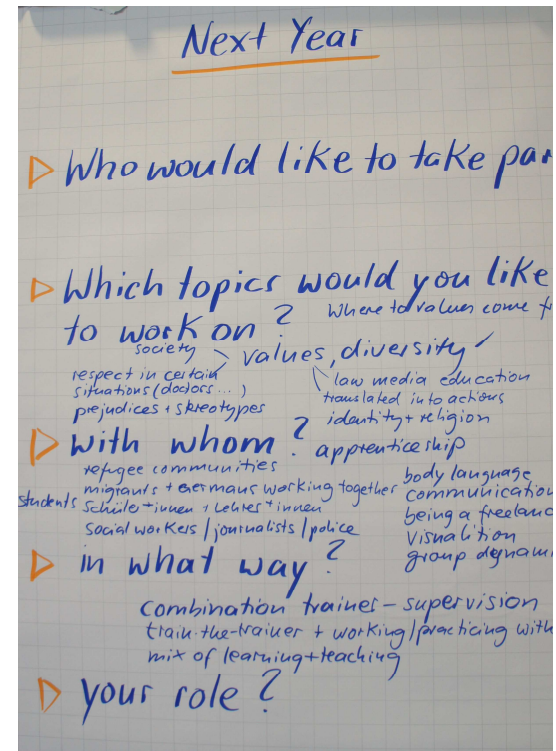 Next Year
Who would like to take par
Which topics would you like
to work on?
Where to values come f
society
values, diversity
respect in certain
situations (doctors...)
prejudices + skreotypes
law media education
translated into actions
identity + religion
with whom?
apprenticeship
refugee communities
migrants + Germans working together
students Schüler+innen + Lehrer+innen
social workers / journalists / police
body language
communication
being a freelanc
visualition
group dynami
in what way?
combination trainer - supervision
train-the-trainer + working/practicing with
mix of learning+teaching
your role?